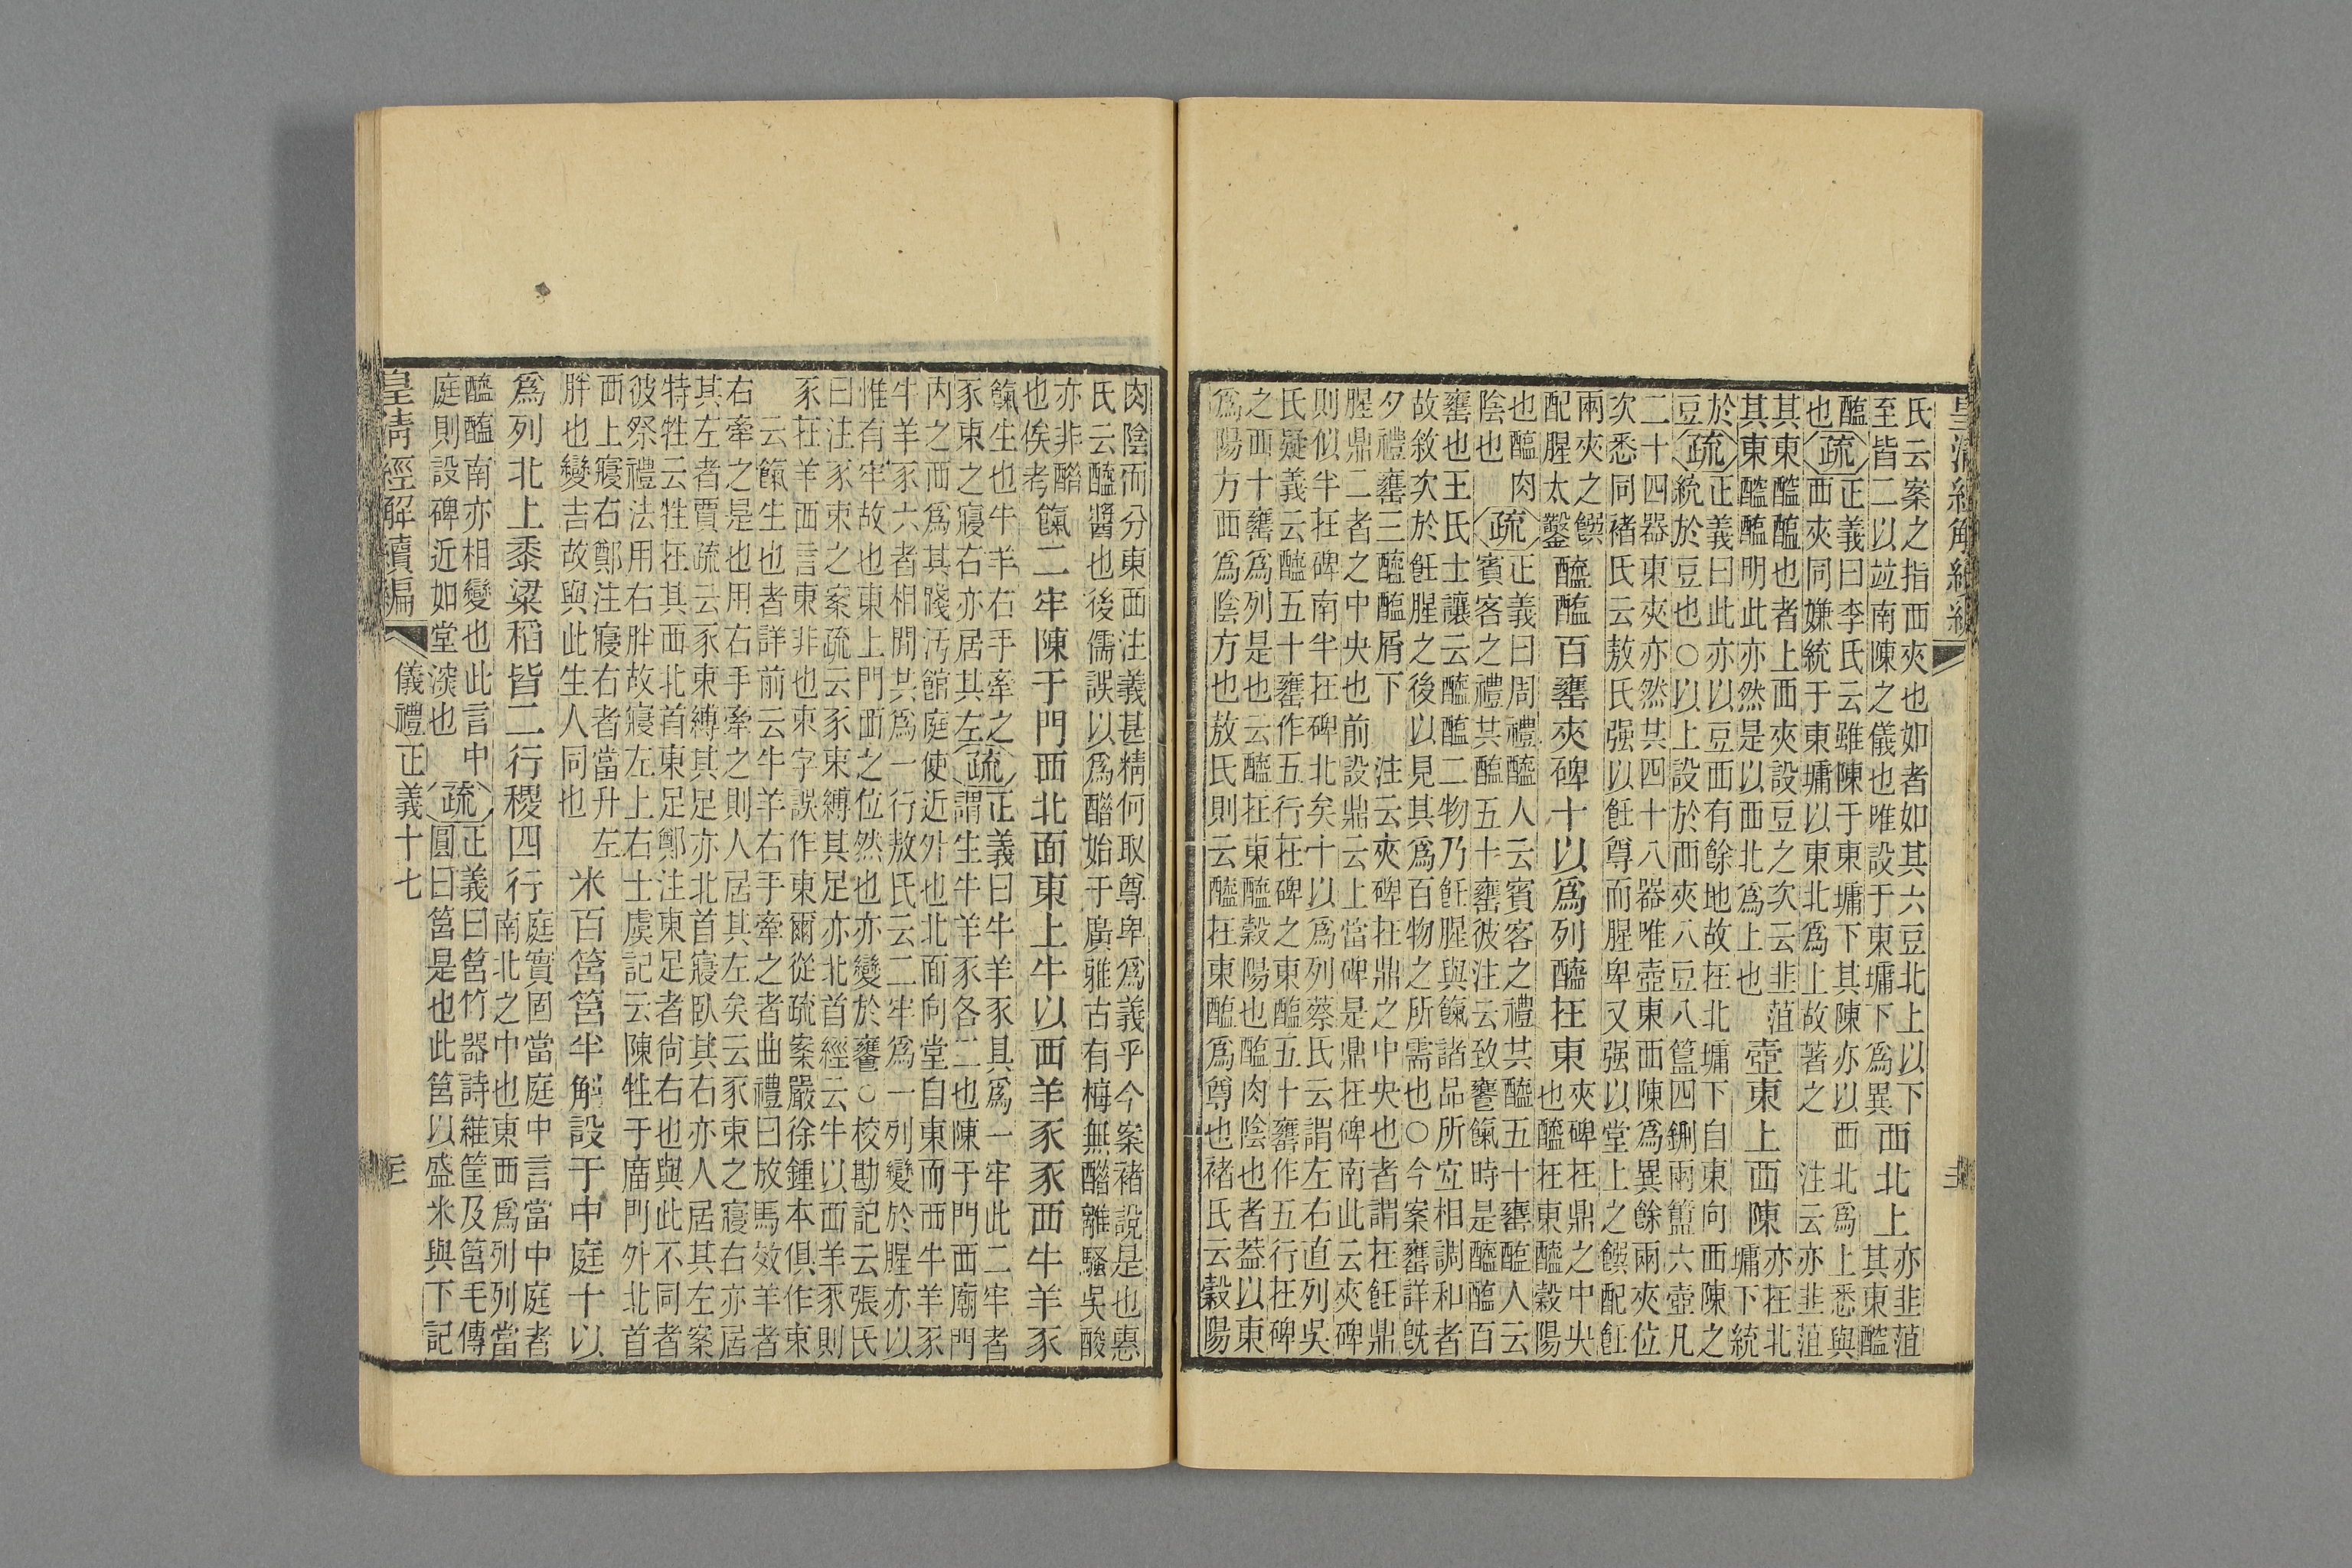 皇清經解續編
氏云案之指西夾也如者如其六豆北上以下
至皆二以竝南陳之儀也唯設于東墉下爲異
西北上
亦韭菹
其東醓
醢疏正義曰李氏云雖陳于東墉下其陳亦以西北爲上悉與
也西夾同嫌統于東墉以東北爲上故著之 注云亦韭菹
其東醓醢也者上西夾設豆之次云韭菹
其東醓醢明此亦然是以西北爲上也
壺東上西陳
亦在北
墉下統
於疏正義曰此亦以豆西有餘地故在北墉下自東向西陳之
豆統於豆也○以上設於西夾八豆八簋四鉶兩簠六壺凡
二十四器東夾亦然其四十八器唯壺東西陳爲異餘兩夾位
次悉同褚氏云敖氏强以飪尊而腥卑又强以堂上之饌配飪
兩夾之饌
配腥太鑿
醯醢百罋夾碑十以爲列醯在東
夾碑在鼎之中央
也醯在東醯穀陽
也醢肉疏正義曰周禮醯人云賓客之禮共醯五十罋醢人云
陰也賓客之禮共醢五十罋彼注云致饔餼時是醯醢百
罋也王氏士讓云醯醢二物乃飪腥與餼諸品所宜相調和者
故敘次於飪腥之後以見其爲百物之所需也○今案罋詳旣
夕禮罋三醯醢屑下 注云夾碑在鼎之中央也者謂在飪鼎
腥鼎二者之中央也前設鼎云上當碑是鼎在碑南此云夾碑
則似半在碑南半在碑北矣十以爲列蔡氏云謂左右直列吳
氏疑義云醯五十罋作五行在碑之東醢五十罋作五行在碑
之西十罋爲列是也云醯在東醯穀陽也醢肉陰也者蓋以東
爲陽方西爲陰方也敖氏則云醯在東醯爲尊也褚氏云穀陽
肉陰而分東西注義甚精何取尊卑爲義乎今案褚說是也惠
氏云醯醬也後儒誤以爲醋始于廣雅古有梅無醋離騷吳酸
亦非醋
也俟考
餼二牢陳于門西北面東上牛以西羊豕豕西牛羊豕
餼生也牛羊右手牽之疏正義曰牛羊豕具爲一牢此二牢者
豕東之寢右亦居其左謂生牛羊豕各二也陳于門西廟門
內之西爲其踐汚館庭使近外也北面向堂自東而西牛羊豕
牛羊豕六者相閒共爲一行敖氏云二牢爲一列變於腥亦以
惟有牢故也東上門西之位然也亦變於饔○校勘記云張氏
曰注豕東之案疏云豕東縛其足亦北首經云牛以西羊豕則
豕在羊西言東非也東字誤作東爾從疏案嚴徐鍾本俱作東
云餼生也者詳前云牛羊右手牽之者曲禮曰放馬效羊者
右牽之是也用右手牽之則人居其左矣云豕東之寢右亦居
其左者賈疏云豕東縛其足亦北首寢臥其右亦人居其左案
特牲云牲在其西北首東足鄭注東足者尙右也與此不同者
彼祭禮法用右胖故寢左上右士虞記云陳牲于廟門外北首
西上寢右鄭注寢右者當升左
胖也變吉故與此生人同也
米百筥筥半斛設于中庭十以
爲列北上黍粱稻皆二行稷四行
庭實固當庭中言當中庭者
南北之中也東西爲列列當
醯醢南亦相變也此言中疏正義曰筥竹器詩維筐及筥毛傳
庭則設碑近如堂深也圓曰筥是也此筥以盛米與下記
皇清經解續編
儀禮正義十七